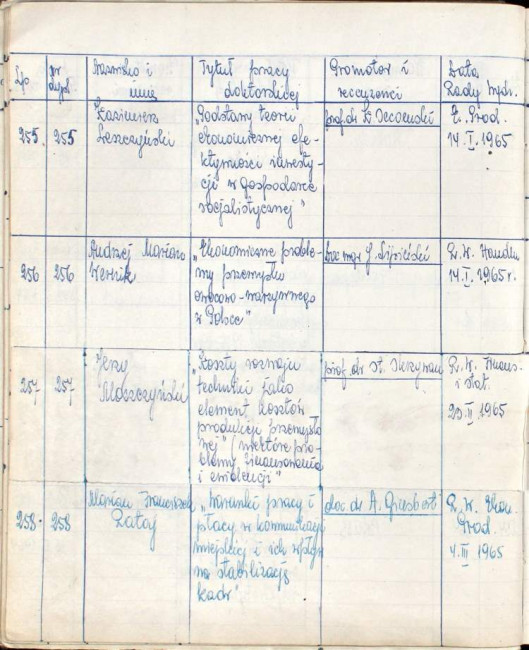 Lp
nr dypl.
Nazwisko i
imię
Tytuł pracy
doktorskiej
Promotor i
recenzenci
Data
Rady Wydz.
255.
255
Kazimierz
Leszczyński
"Podstawy teorii
ekonomicznej efe-
ktywności inwesty-
cji w gospodarce
socjalistycznej"
prof. dr
R. Prod.
14.I.1965
256
256
Andrzej Mariano
Wernik
"Ekonomiczne proble-
my przemysłu
owocowo-warzywnego
w Polsce"
doc mgr J.
R. W. Handlu
14.I.1965 r.
257
257
Jerzy
Moszczyński
"Koszty rozwoju
techniki jako
element kosztów
produkcji przemysło
wej" (niektóre pro-
blemy finansowania
i ewidencji"
prof. dr St. Skrzywan
R. W. Finans.
i Stat.
1965
258.
258
Marian Franciszek
Rataj
"Warunki pracy i
płacy w komunikacji
miejskiej i ich wpływ
na stabilizację
kadr"
doc. dr A.
R. W. Ekon.
Prod.
4.III 1965